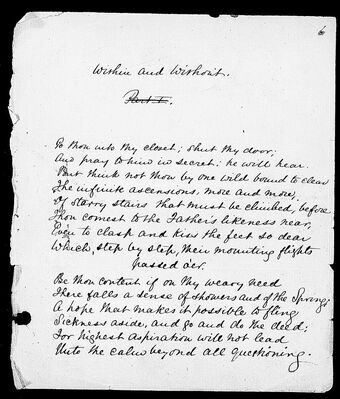 6
Within and Without.
Part I.
Go thou into thy closet; shut thy door;
And pray to him in secret: he will hear.
But think not thou by one wild bound to clear
The infinite ascensions, more and more,
Of starry stairs that must be climbed, before
Thou comest to the Father's likeness near,
Even to clasp and kiss the feet so dear
Which, step by step, their mounting flights
passed o'er.
Be thou content if on thy weary need
There falls a sense of showers and of the Spring;
A hope that makes it possible to fling
Sickness aside, and go and do the deed;
For highest aspiration will not lead
Unto the calm beyond all questioning.